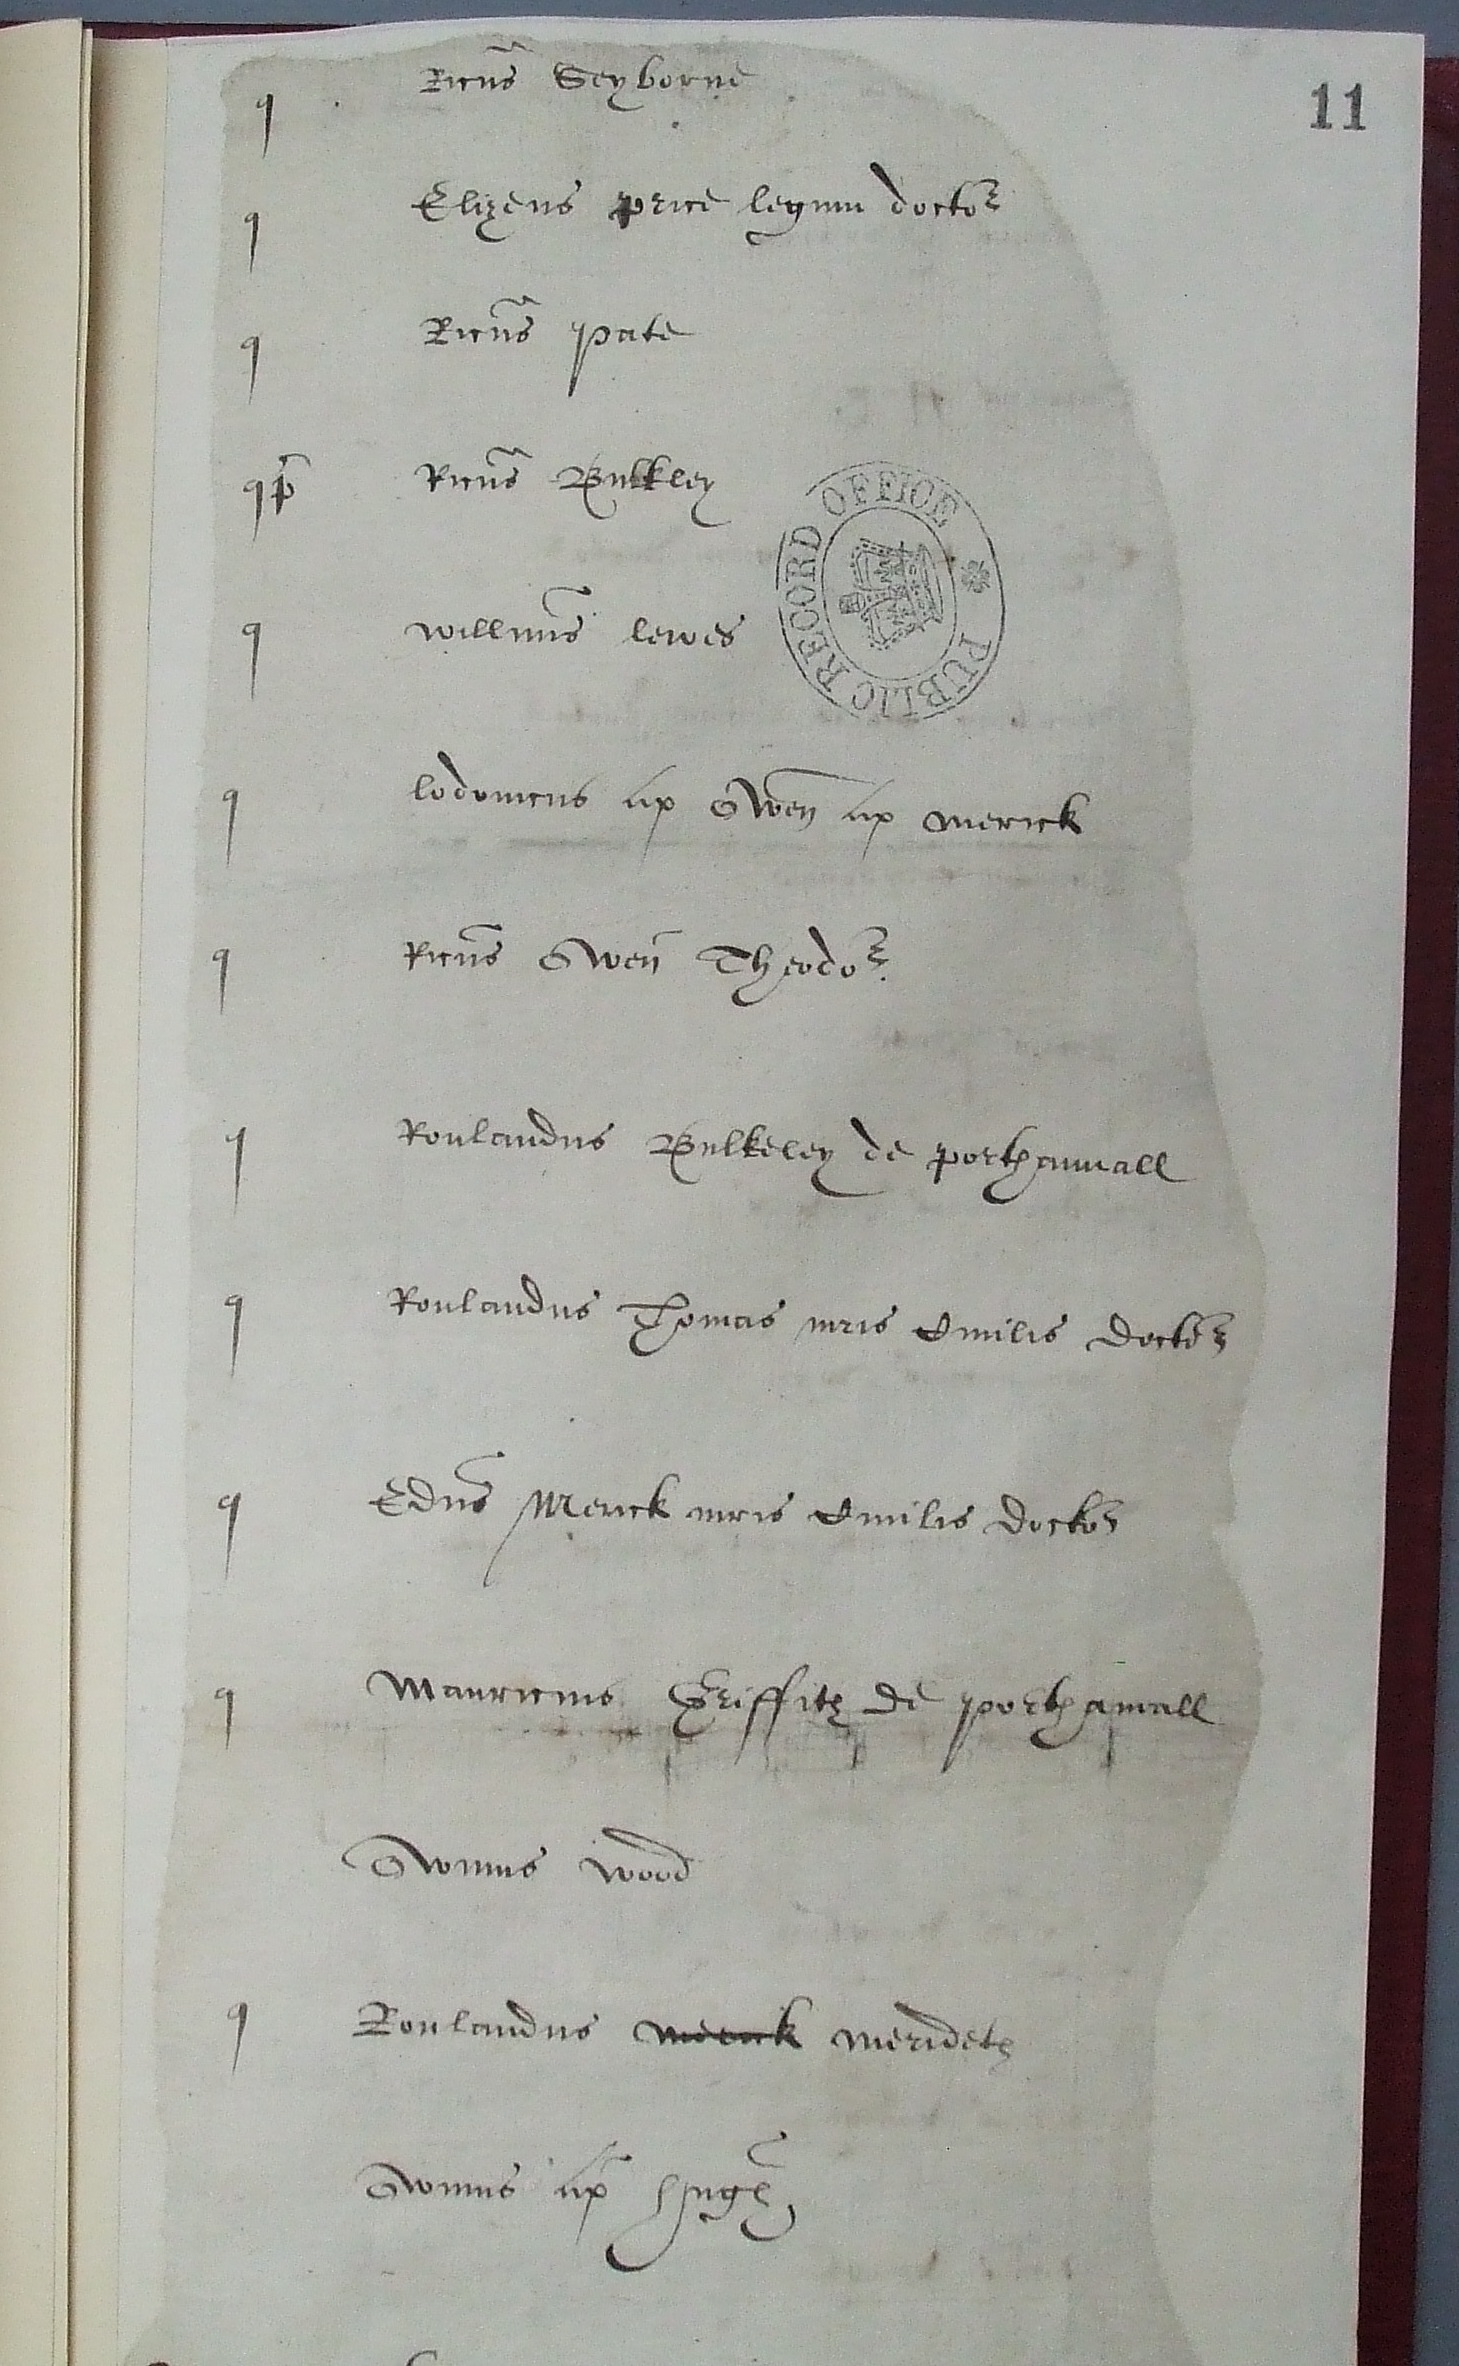 11
q Ricus Seyborne
q Elizeus price legum doctor
q Ricus Pate
qp Ricus Bulkley
PUBLIC RECORD OFFICE
q willmus lewes
q lodouicus ap Owen ap merick
q Ricus Owen Theodor
q Roulandus Bulkeley de porthamall
q Roulandus Thomas iuris Ciuilis Doctor
q Edus Merick iuris Ciuilis Doctor
q Mauricius Griffith de porthamall
Owinus wood
q Roulandus merick merideth
Owinus ap Hugh